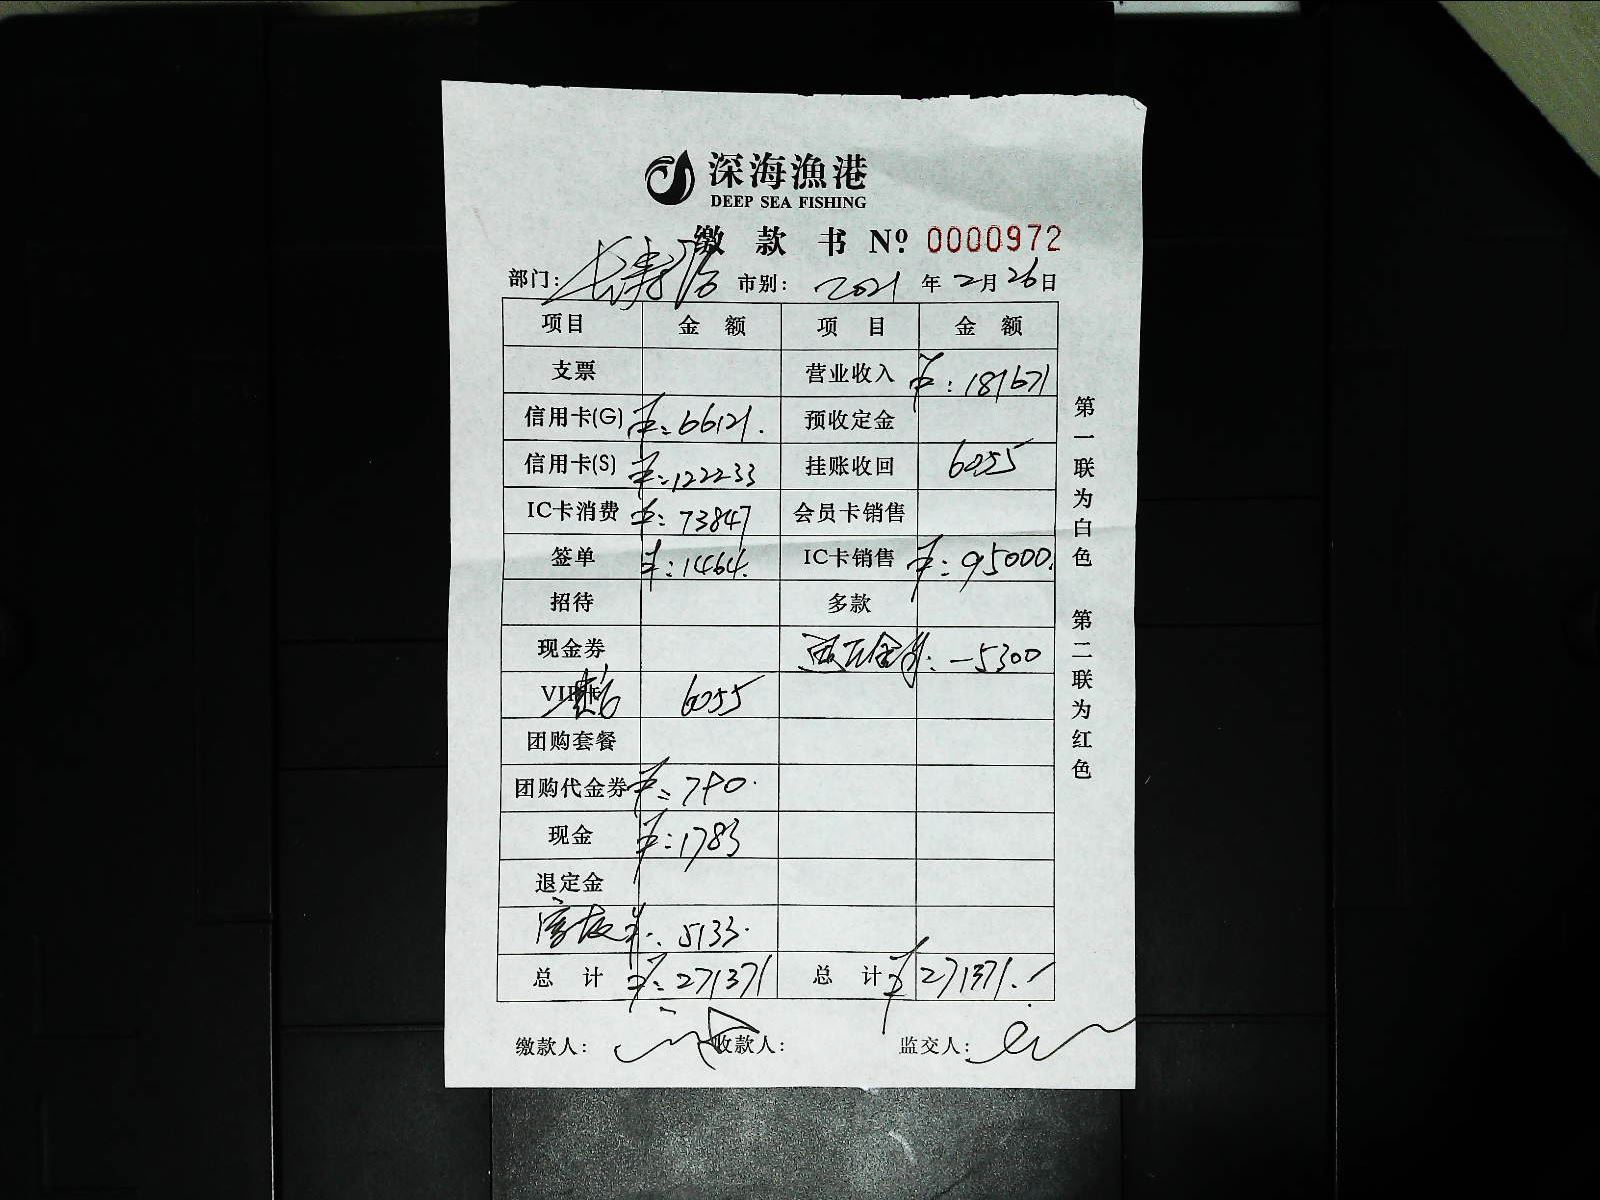 深海漁港
DEEP SEA FISHING
缴 款 书 Nº 0000972
部门: 长寿路 市别: 2021 年 2 月 26 日
项目 金 额 项 目 金 额
支票 营业收入 ¥: 181671
信用卡(G) ¥: 66121. 预收定金
信用卡(S) ¥: 122233 挂账收回 6055
IC卡消费 ¥: 73847 会员卡销售
签单 ¥: 1464. IC卡销售 ¥: 95000.
招待 多款
现金券 退定金 ¥: -5300
VIP卡 6055
团购套餐
团购代金券 ¥: 790.
现金 ¥: 1783
退定金
¥: 5133.
总 计 ¥: 271371 总 计 ¥ 271371.
缴款人: 收款人: 监交人:
第一联为白色 第二联为红色